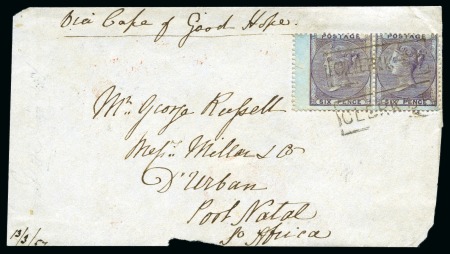 Via Cape of Good Hope.
POSTAGE POSTAGE
SIX PENCE SIX PENCE
Mr. George Russell
Messrs. Millar & Co
D'Urban
Port Natal
So Africa
13/3/